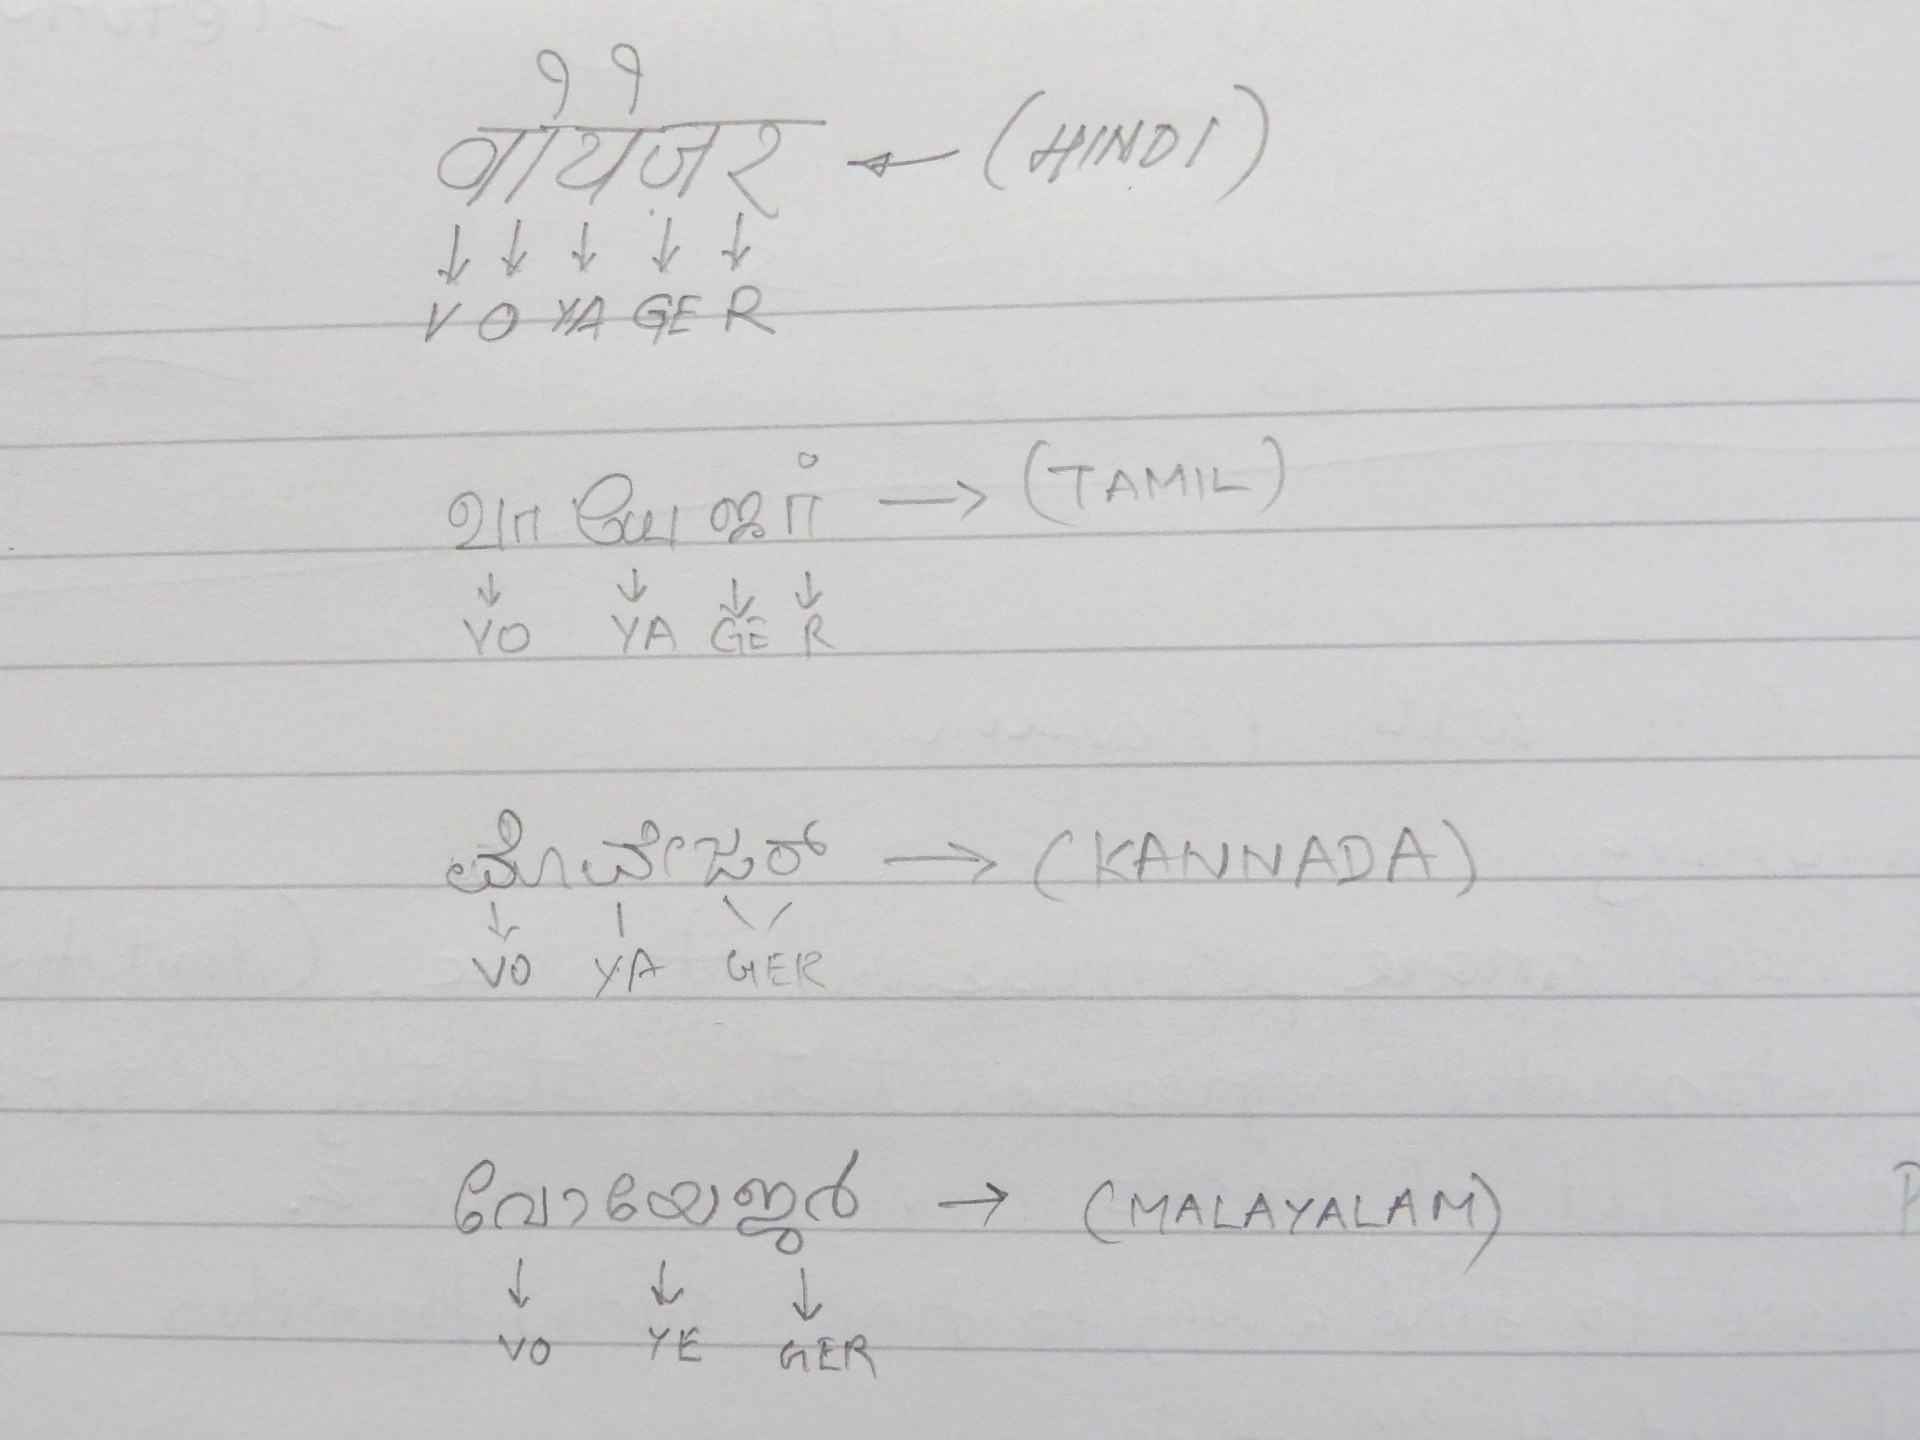 वोयेजर ← (HINDI)
↓ ↓ ↓ ↓ ↓
V O YA GE R
வாயேஜர் → (TAMIL)
↓ ↓ ↓ ↓
VO YA GE R
ವೊಯೇಜರ್ → (KANNADA)
VO YA GER
വോയേജർ → (MALAYALAM)
↓ ↓ ↓
VO YE GER